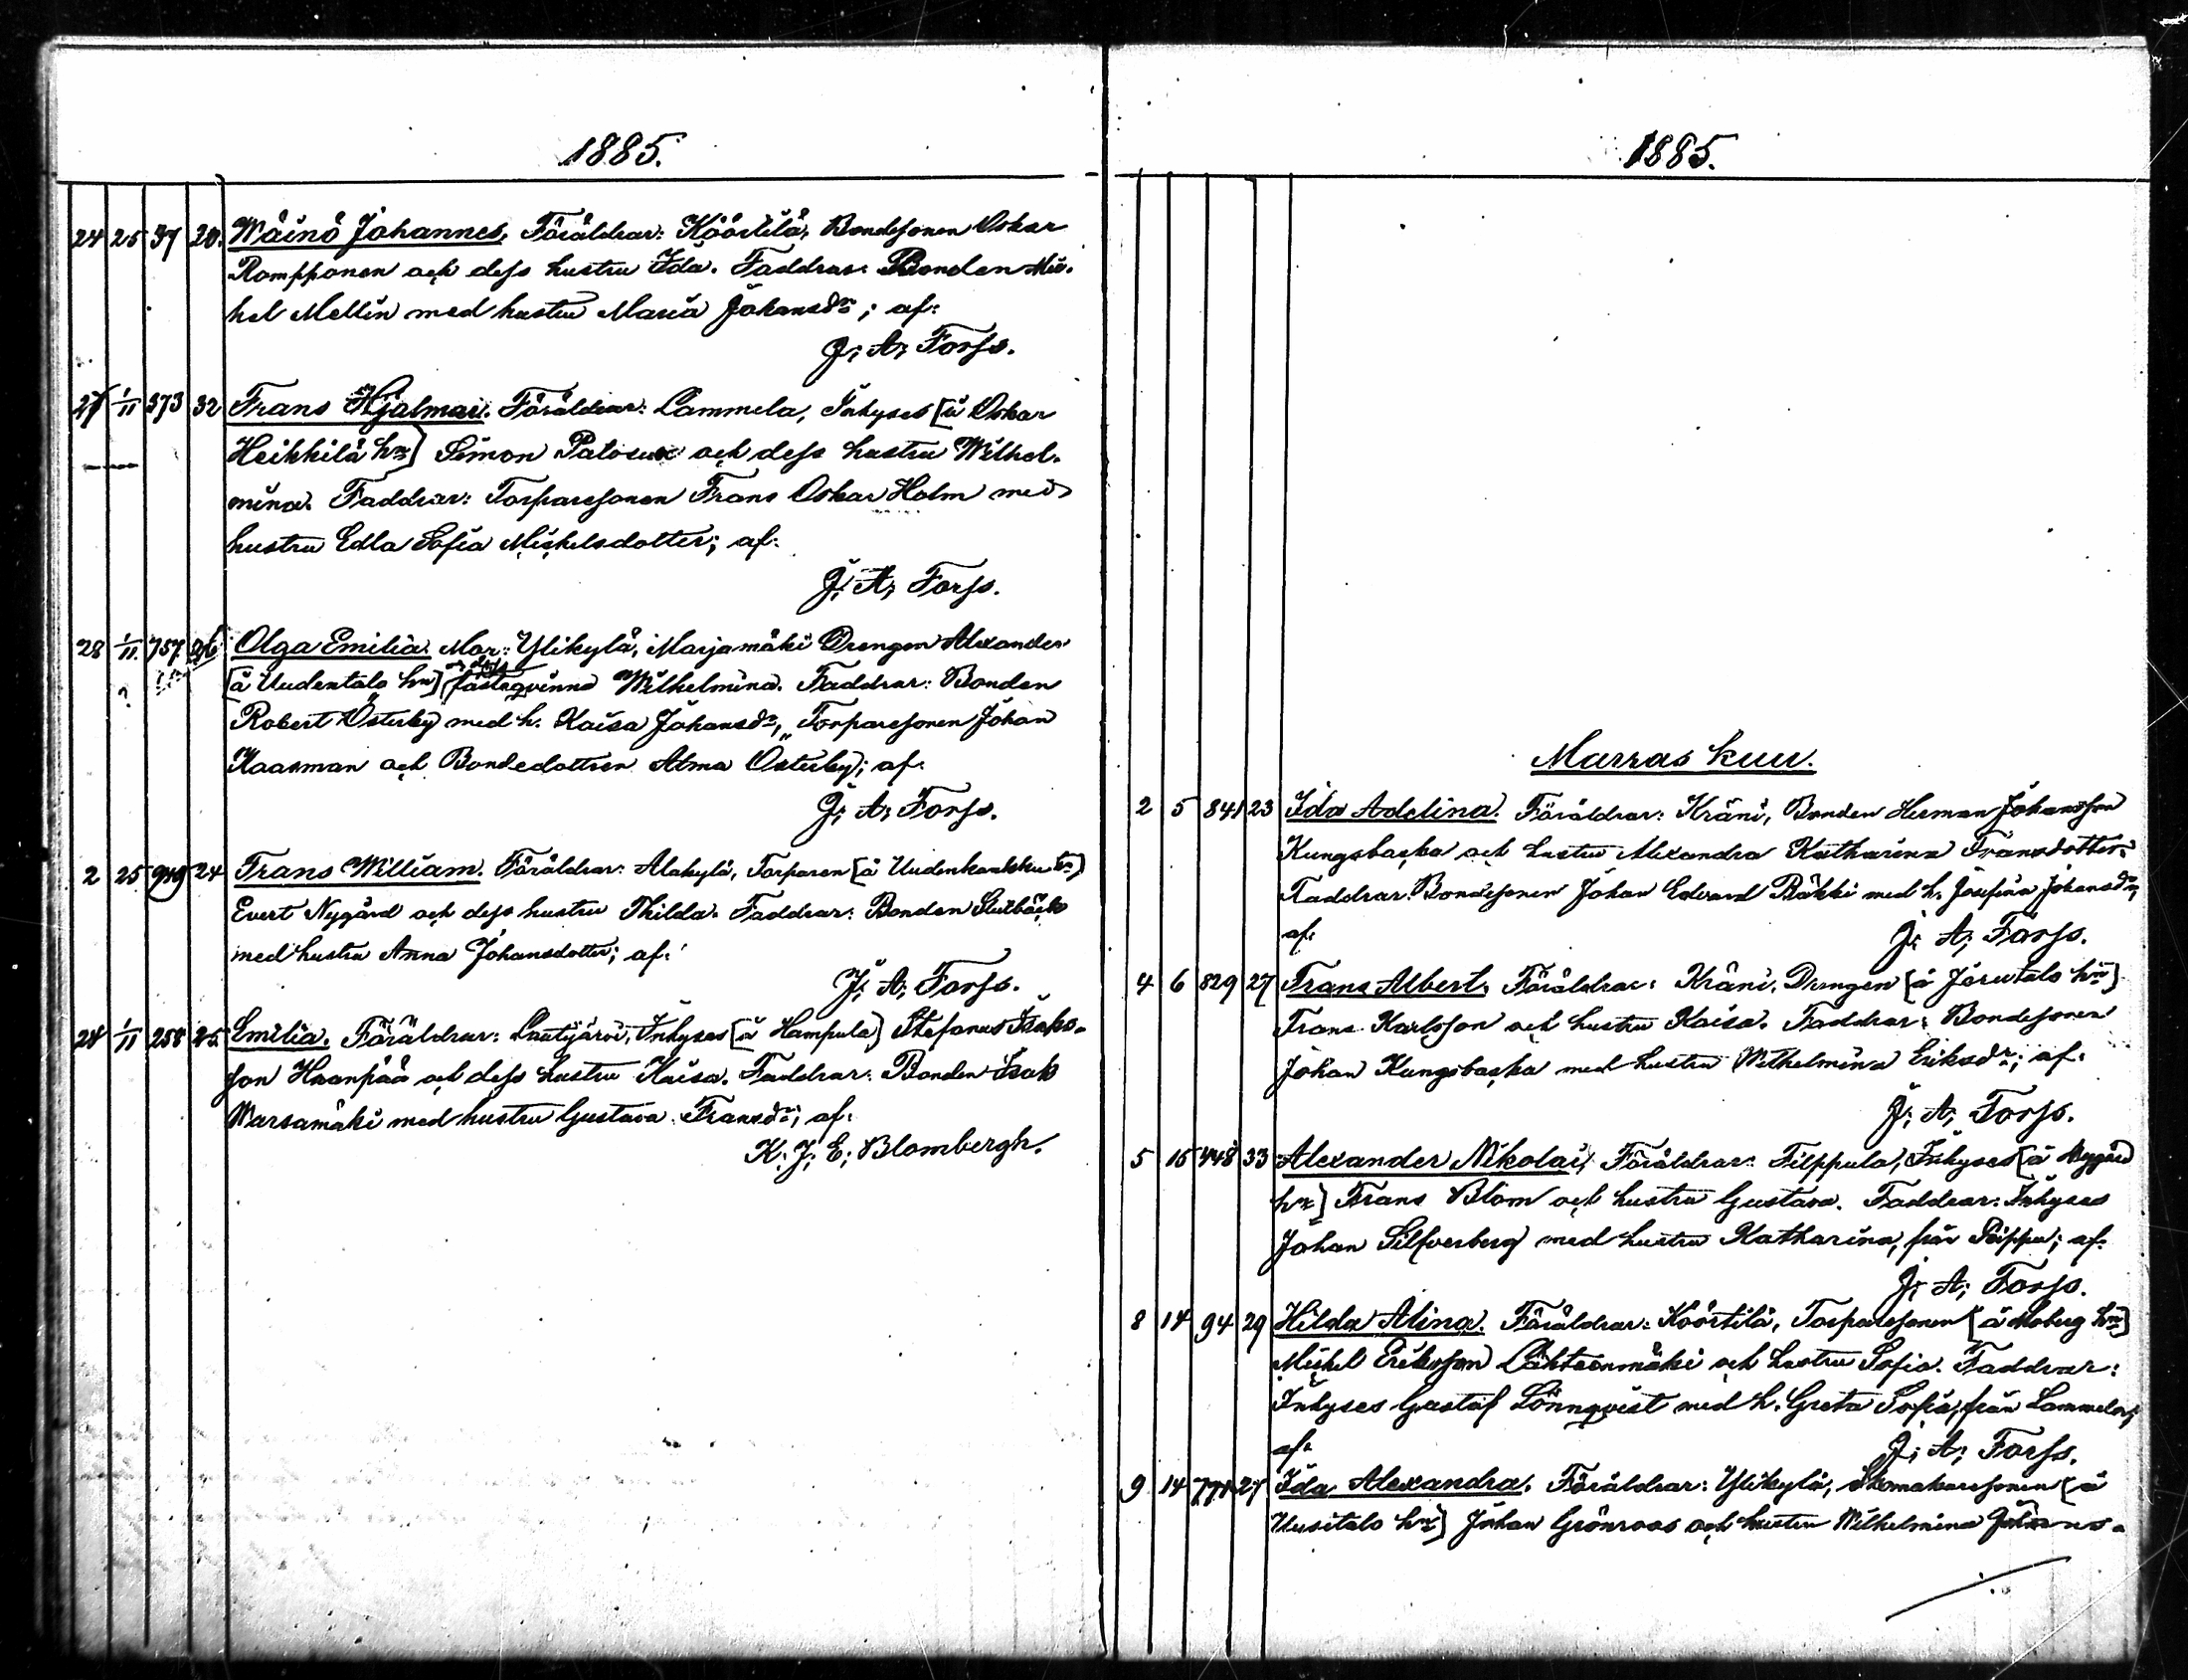 1885.
24 25 37 20. Wäinö Johannes, Föräldrar: Köörtilä, Bondesonen Oskar
Rompponen och dess hustru Ida. Faddrar: Bonden Mic-
hel Mellin med hustru Maria Johansdr; af:
J. A. Forss.
27 1/11 373 32 Frans Hjalmar. Föräldrar: Lammela, Inhyses [å Oskar
Heikkilä hn] Simon Palosuo och dess hustru Wilhel-
mina. Faddrar: Torparesonen Frans Oskar Holm med
hustru Edla Sofia Michelsdotter; af:
J. A. Forss.
28 1/11 757 26 Olga Emilia. Mor: Ylikylä, Marjamäki Drengen Alexander
[å Uudentalo hn] fästeqvinna Wilhelmina. Faddrar: Bonden
Robert Österby med h. Kaisa Johansdr, Torparesonen Johan
Haasman och Bondedottren Alma Österby; af:
J. A. Forss.
2 25 949 24 Frans William. Föräldrar: Alakylä, Torparen [å
Evert Nygård och dess hustru Thilda. Faddrar: Bonden
med hustru Anna Johansdotter; af:
J. A. Forss.
24 1/11 258 25. Emilia. Föräldrar: Lautijärvi, Inhyses [å Hampula] Stefanus Isaks-
son Haanpää och dess hustru Kaisa. Faddrar: Bonden Isak
Warsamäki med hustru Gustava Fransdr; af:
K. J. E. Blombergh.
1885.
Marras kuu.
2 5 841 23 Ida Adelina. Föräldrar: Kräni, Bonden Herman Johansson
Kungsbacka och hustru Alexandra Katharina Fransdotter;
Faddrar: Bondesonen Johan Edvard Bäkki med h. Josefina Johansdr;
af: J. A. Forss.
4 6 829 27 Frans Albert. Föräldrar: Kräni, Drengen [å Järutalo hn]
Frans Karlsson och hustru Kaisa. Faddrar: Bondesonen
Johan Kungsbacka med hustru Wilhelmina Eriksdr; af:
J. A. Forss.
5 15 448 33 Alexander Nikolai, Föräldrar: Filppula, Inhyses [å Nygård
hn] Frans Blom och hustru Gustava. Faddrar: Inhyses
Johan Silfverberg med hustru Katharina, från Piippu; af:
J. A. Forss.
8 14 94 29 Hilda Alina. Föräldrar: Köörtilä, Torparesonen [å Moberg hn]
Michel Eriksson Lähteenmäki och hustru Sofia. Faddrar:
Inhyses Gustaf Lönnqvist med h. Greta Sofia, från Lammela;
af: J. A. Forss.
9 14 771 27 Ida Alexandra. Föräldrar: Ylikylä, Skomakaresonen [å
Uusitalo hn] Johan Grönroos och hustru Wilhelmina Johans-